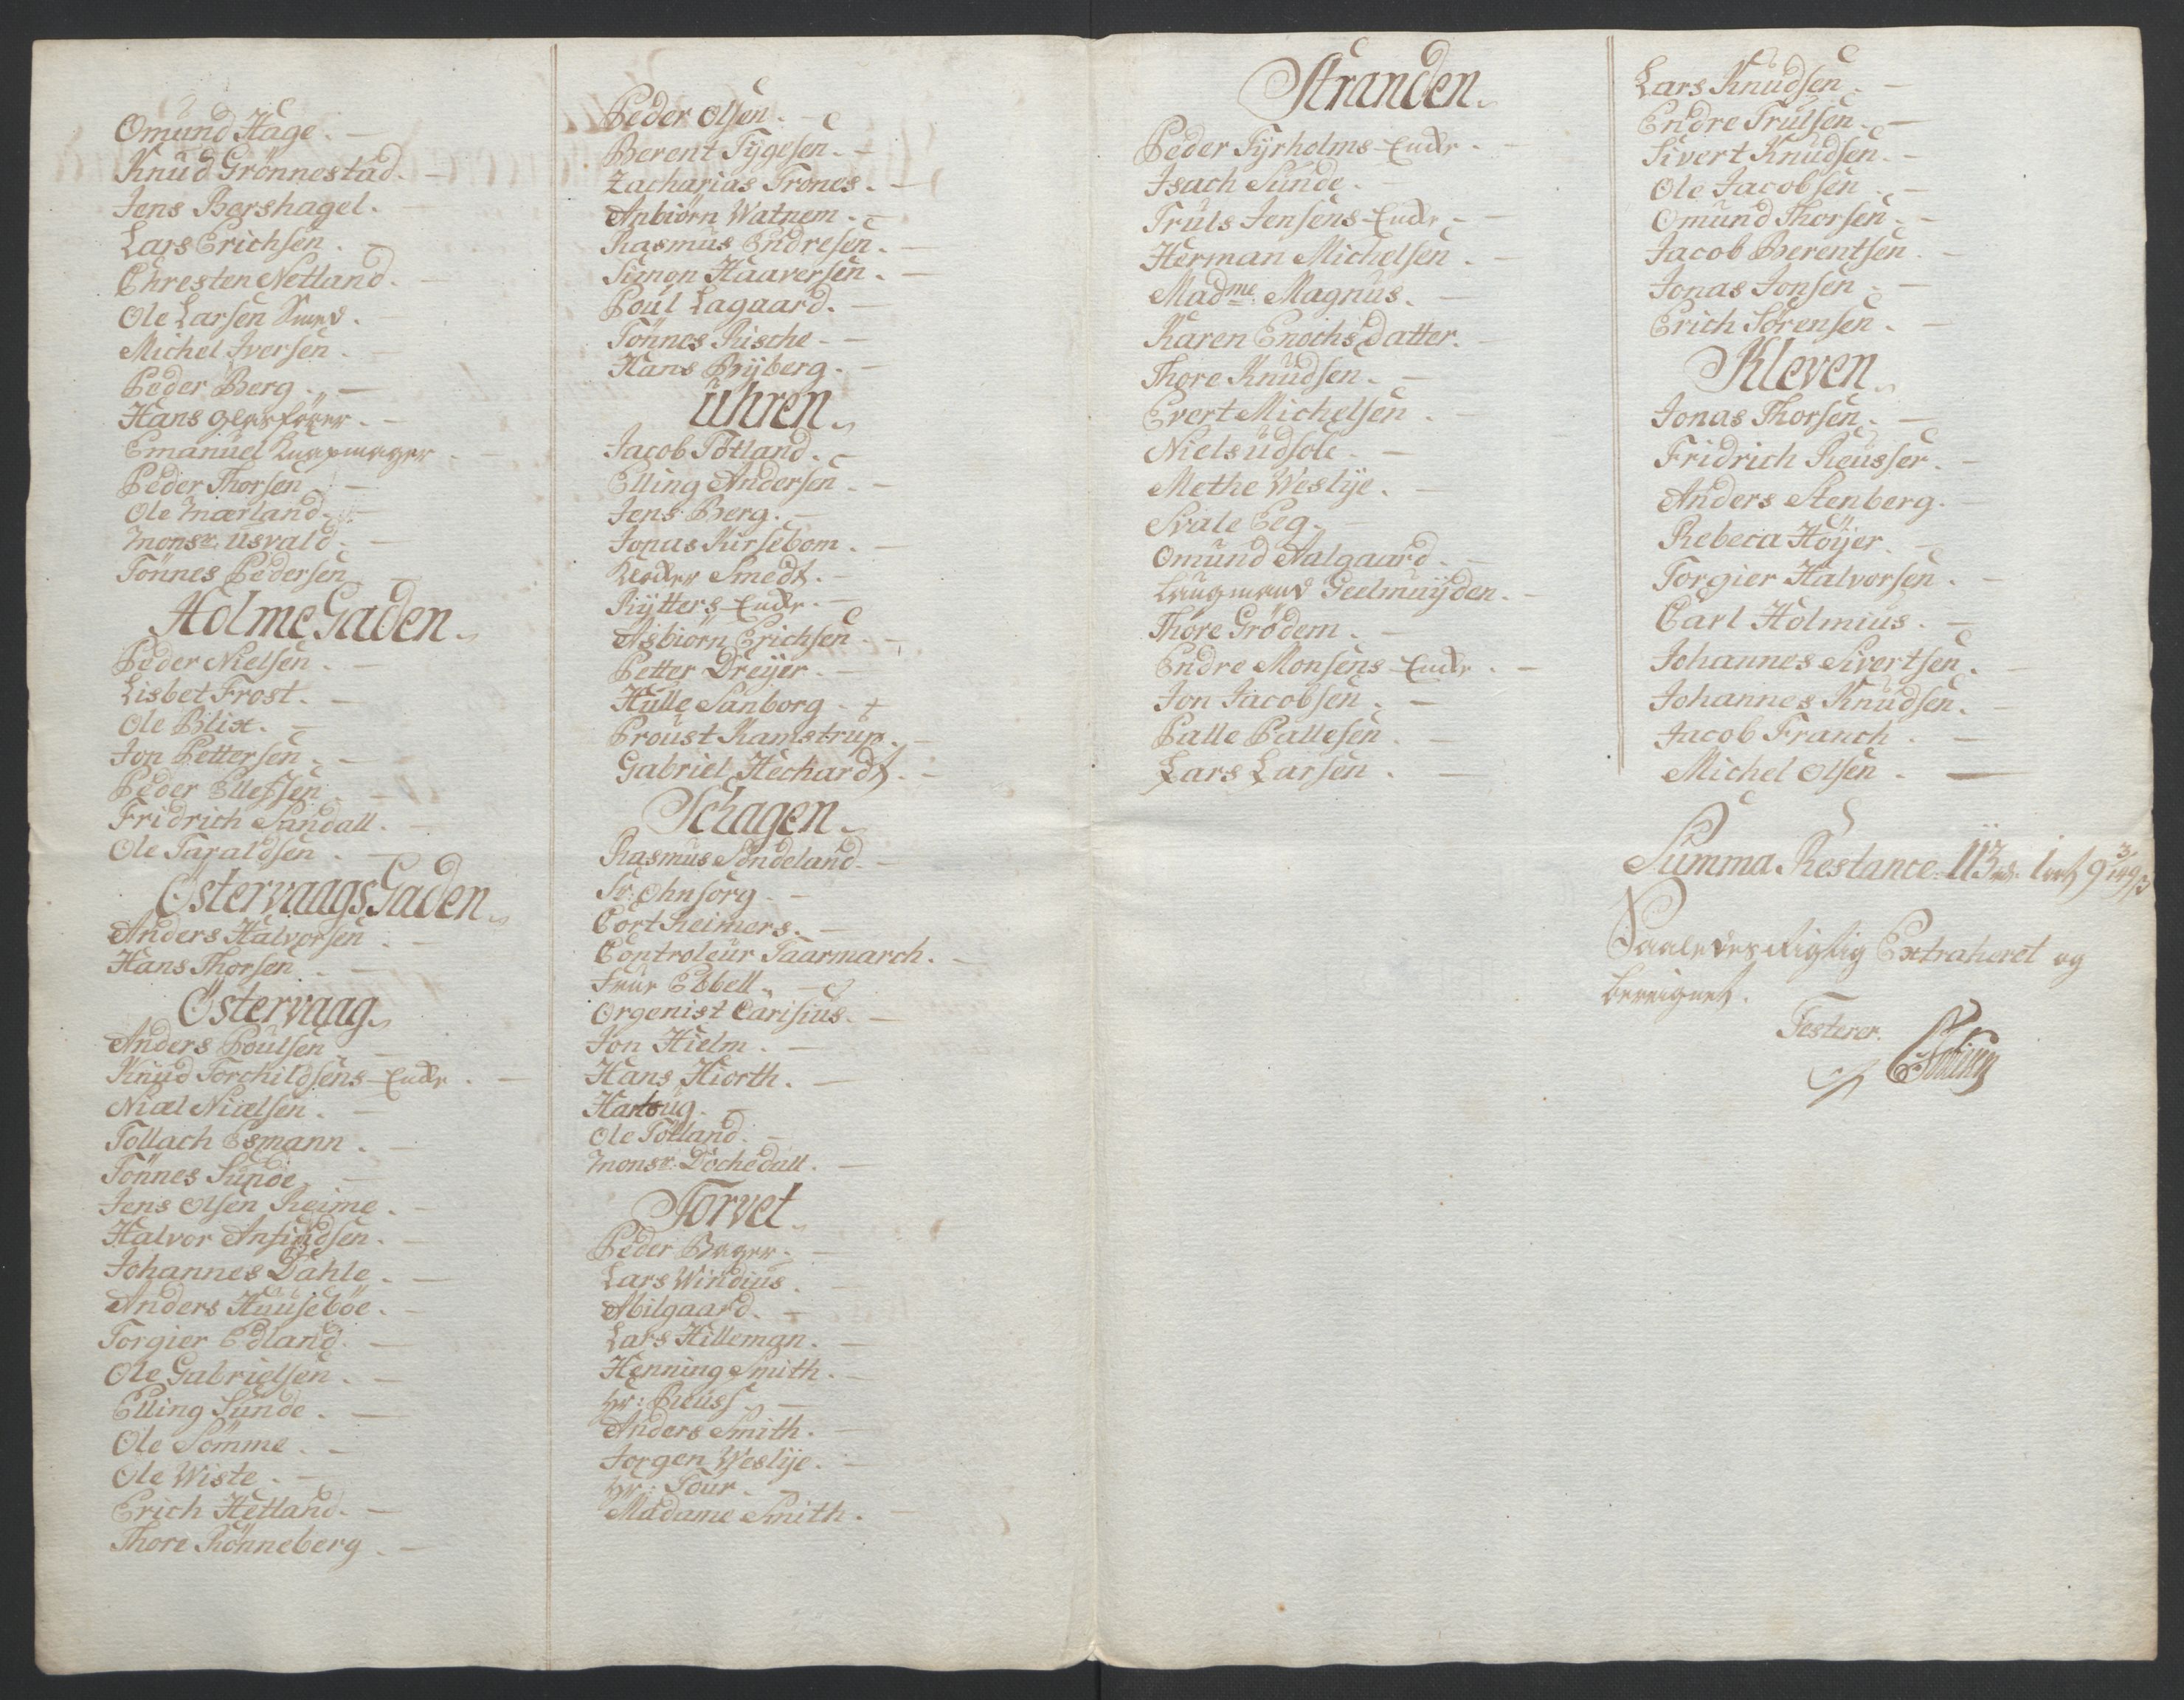 Omund Hage. —
Knud Grönnestad. —
Jens Bershagel. —
Lars Erichsen. —
Chresten Netland. —
Ole Larsen Smed. —
Michel Iversen. —
Peder Berg. —
Hans Glasförer. —
Emanuel Knapmager —
Peder Thorsen. —
Ole Mærland. —
Monsr. Usvald. —
Tönnes Pedersen —
Holme Gaden.
Peder Nielsen. —
Lisbet Frost. —
Ole Blix. —
Jon Pettersen. —
Peder Ellefsen. —
Fridrich Sandall. —
Ole Taraldsen. —
Östervaags Gaden.
Anders Halvorsen. —
Hans Thorsen. —
Östervaag.
Anders Poulsen —
Knud Torchildsens Encke. —
Niæl Niælsen. —
Tollach Esmann. —
Tönnes Sunde. —
Jens Olsen Reime. —
Halvor Anfindsen. —
Johannes Dahle. —
Anders Huuseböe. —
Torgier Edland. —
Ole Gabrielsen. —
Elling Sunde. —
Ole Sömme. —
Ole Wiste. —
Erich Hetland. —
Thore Rönneberg. —
Peder Olsen. —
Berent Tygesen. —
Zacharias Trones. —
Anbiörn Watnem. —
Rasmus Endresen. —
Simon Haaversen. —
Poul Lagaard. —
Tönnes Rische. —
Hans Bÿberg. —
Uhren.
Jacob Totland. —
Elling Andersen. —
Jens Berg. —
Jonas Kirsebom. —
Smedt. —
Rÿtters Encke. —
Asbiörn Erichsen. —
Petter Dreÿer. —
Hulle Sanborg. —
Proust Ramstrup. —
Gabriel Heckardt. —
Schagen.
Rasmus Sondeland. —
Sr. Ohnsorg. —
Cort Reimers. —
Controleur Taarmarch. —
Frue Ebbell. —
Orgenist Carisius. —
Jon Hielm. —
Hans Hiorth. —
Hartvig. —
Ole Totland. —
Monsr. Dochedall. —
Torvet.
Peder Bager. —
Lars Windius. —
Abilgaard. —
Lars Hilleman. —
Henning Smith. —
Hr: Reuss. —
Anders Smith. —
Jorgen Weslÿe. —
Hr: Tour. —
Madame Smith. —
Stranden.
Peder Tÿrholms Encke. —
Isach Sunde. —
Truls Jensens Encke. —
Herman Michelsen. —
Madme. Magnus. —
Karen Enochs Datter. —
Thore Knudsen. —
Evert Michelsen. —
Niels Udsole. —
Methe Weslÿe. —
Svale Eeg. —
Omund Aalgaard. —
Laugmand Geelmuÿden. —
Thore Grödem. —
Endre Monsens Encke. —
Jon Jacobsen. —
Palle Pallesen. —
Lars Larsen. —
Lars Knudsen. —
Endre Trulsen. —
Sivert Knudsen. —
Ole Jacobsen. —
Omund Thorsen. —
Jacob Berentsen. —
Jonas Jonsen. —
Erich Sörensen. —
Kleven.
Jonas Thorsen. —
Fridrich Reusser. —
Anders Stenberg. —
Rebeca Höÿer. —
Torgier Halvorsen. —
Carl Holmius. —
Johannes Sivertsen. —
Johannes Knudsen. —
Jacob Franch. —
Michel Olsen. —
Summa Restance: 113 rd. 1 ort 9
Saaledes Rigtig Extraheret og
beregnet.
Testerer.